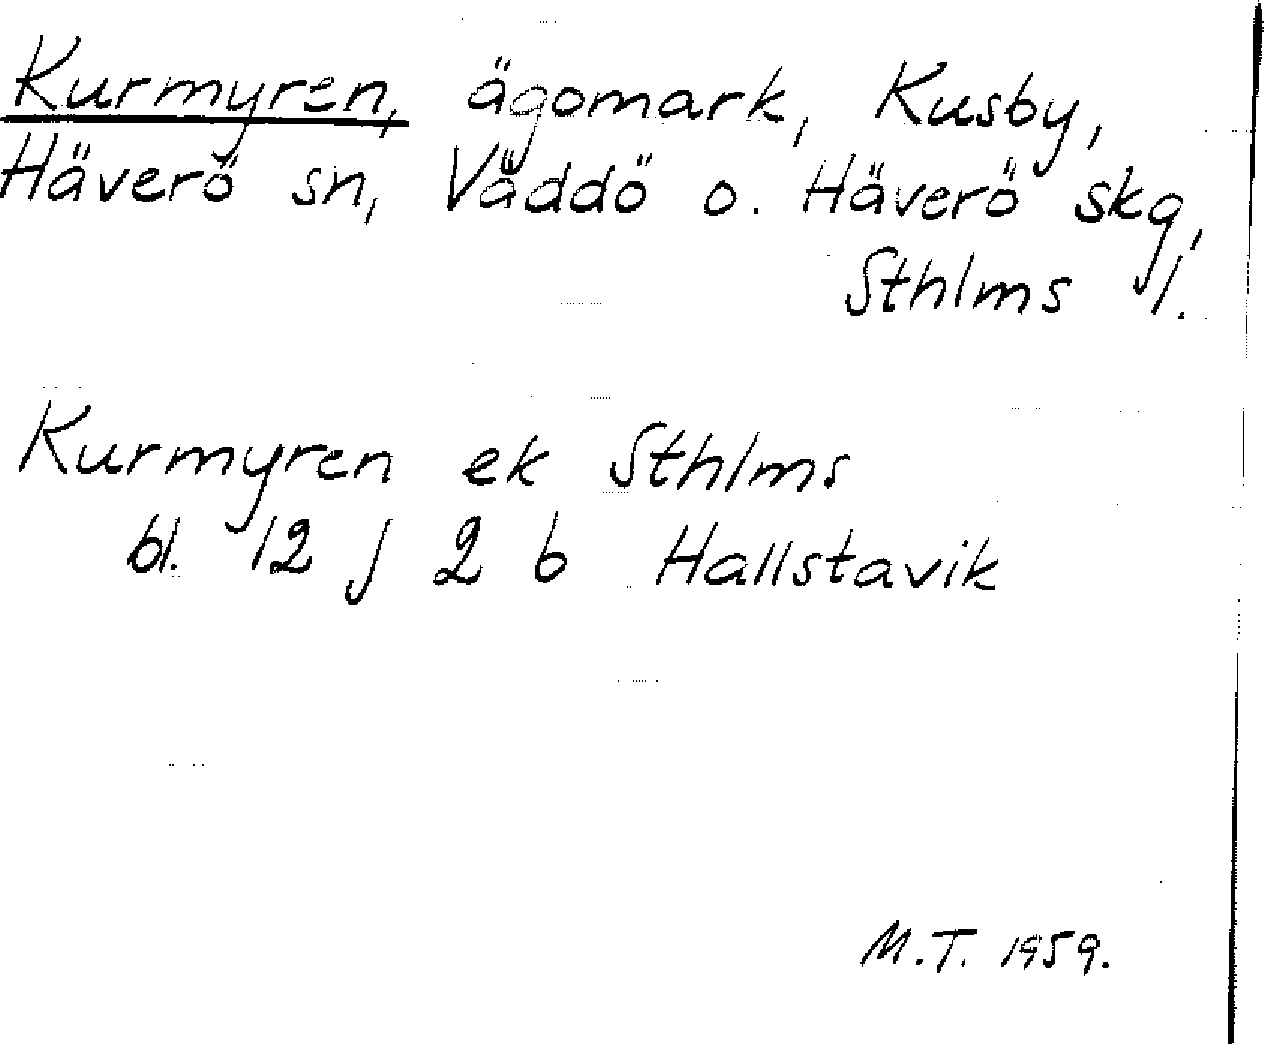 Kurmyren, ägomark, Kusby,
Häverö sn, Väddö o. Häverö skg,
Sthlms l.
Kurmyren ek Sthlms
bl. 12 j 2 b Hallstavik
M.T. 1959.